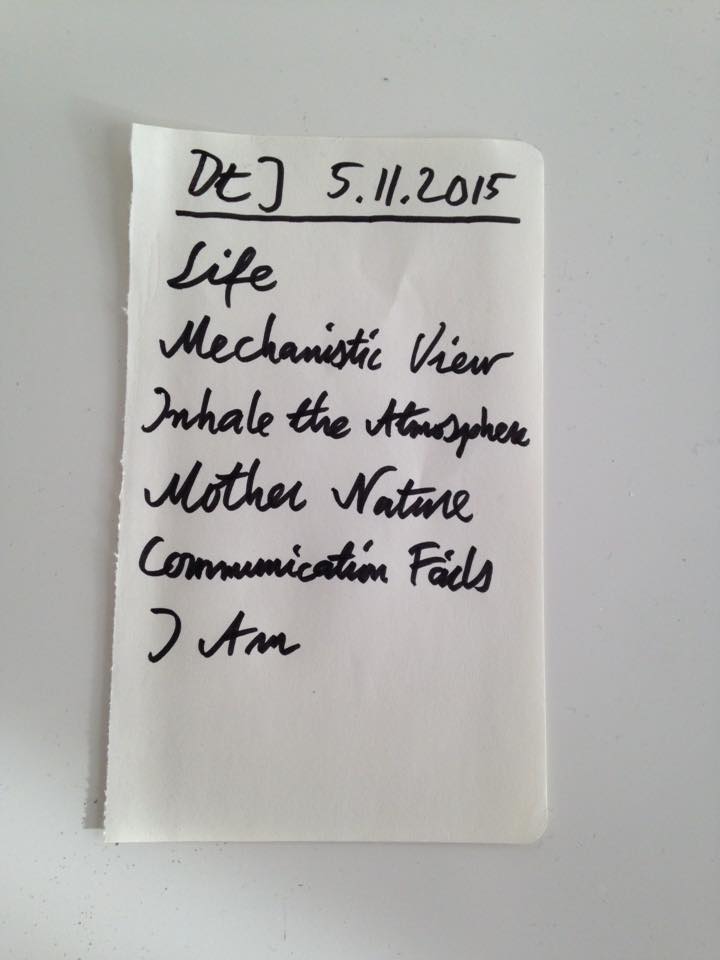 DEJ 5.11.2015
Life
Mechanistic View
Inhale the Atmosphere
Mother Nature
Communication Fails
I Am